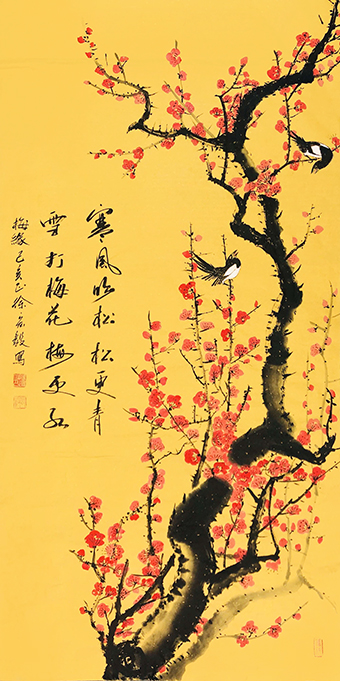 寒风吹松松更青
雪打梅花梅更红
梅缘己亥正徐家毅写